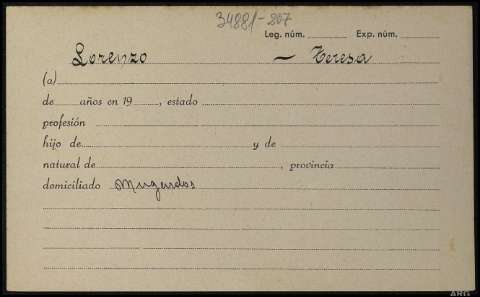 34881-207
Leg. núm. Exp. núm.
Lorenzo — Teresa
(a)
de años en 19 , estado
profesión
hijo de y de
natural de , provincia
domiciliado Mugardos
ARG